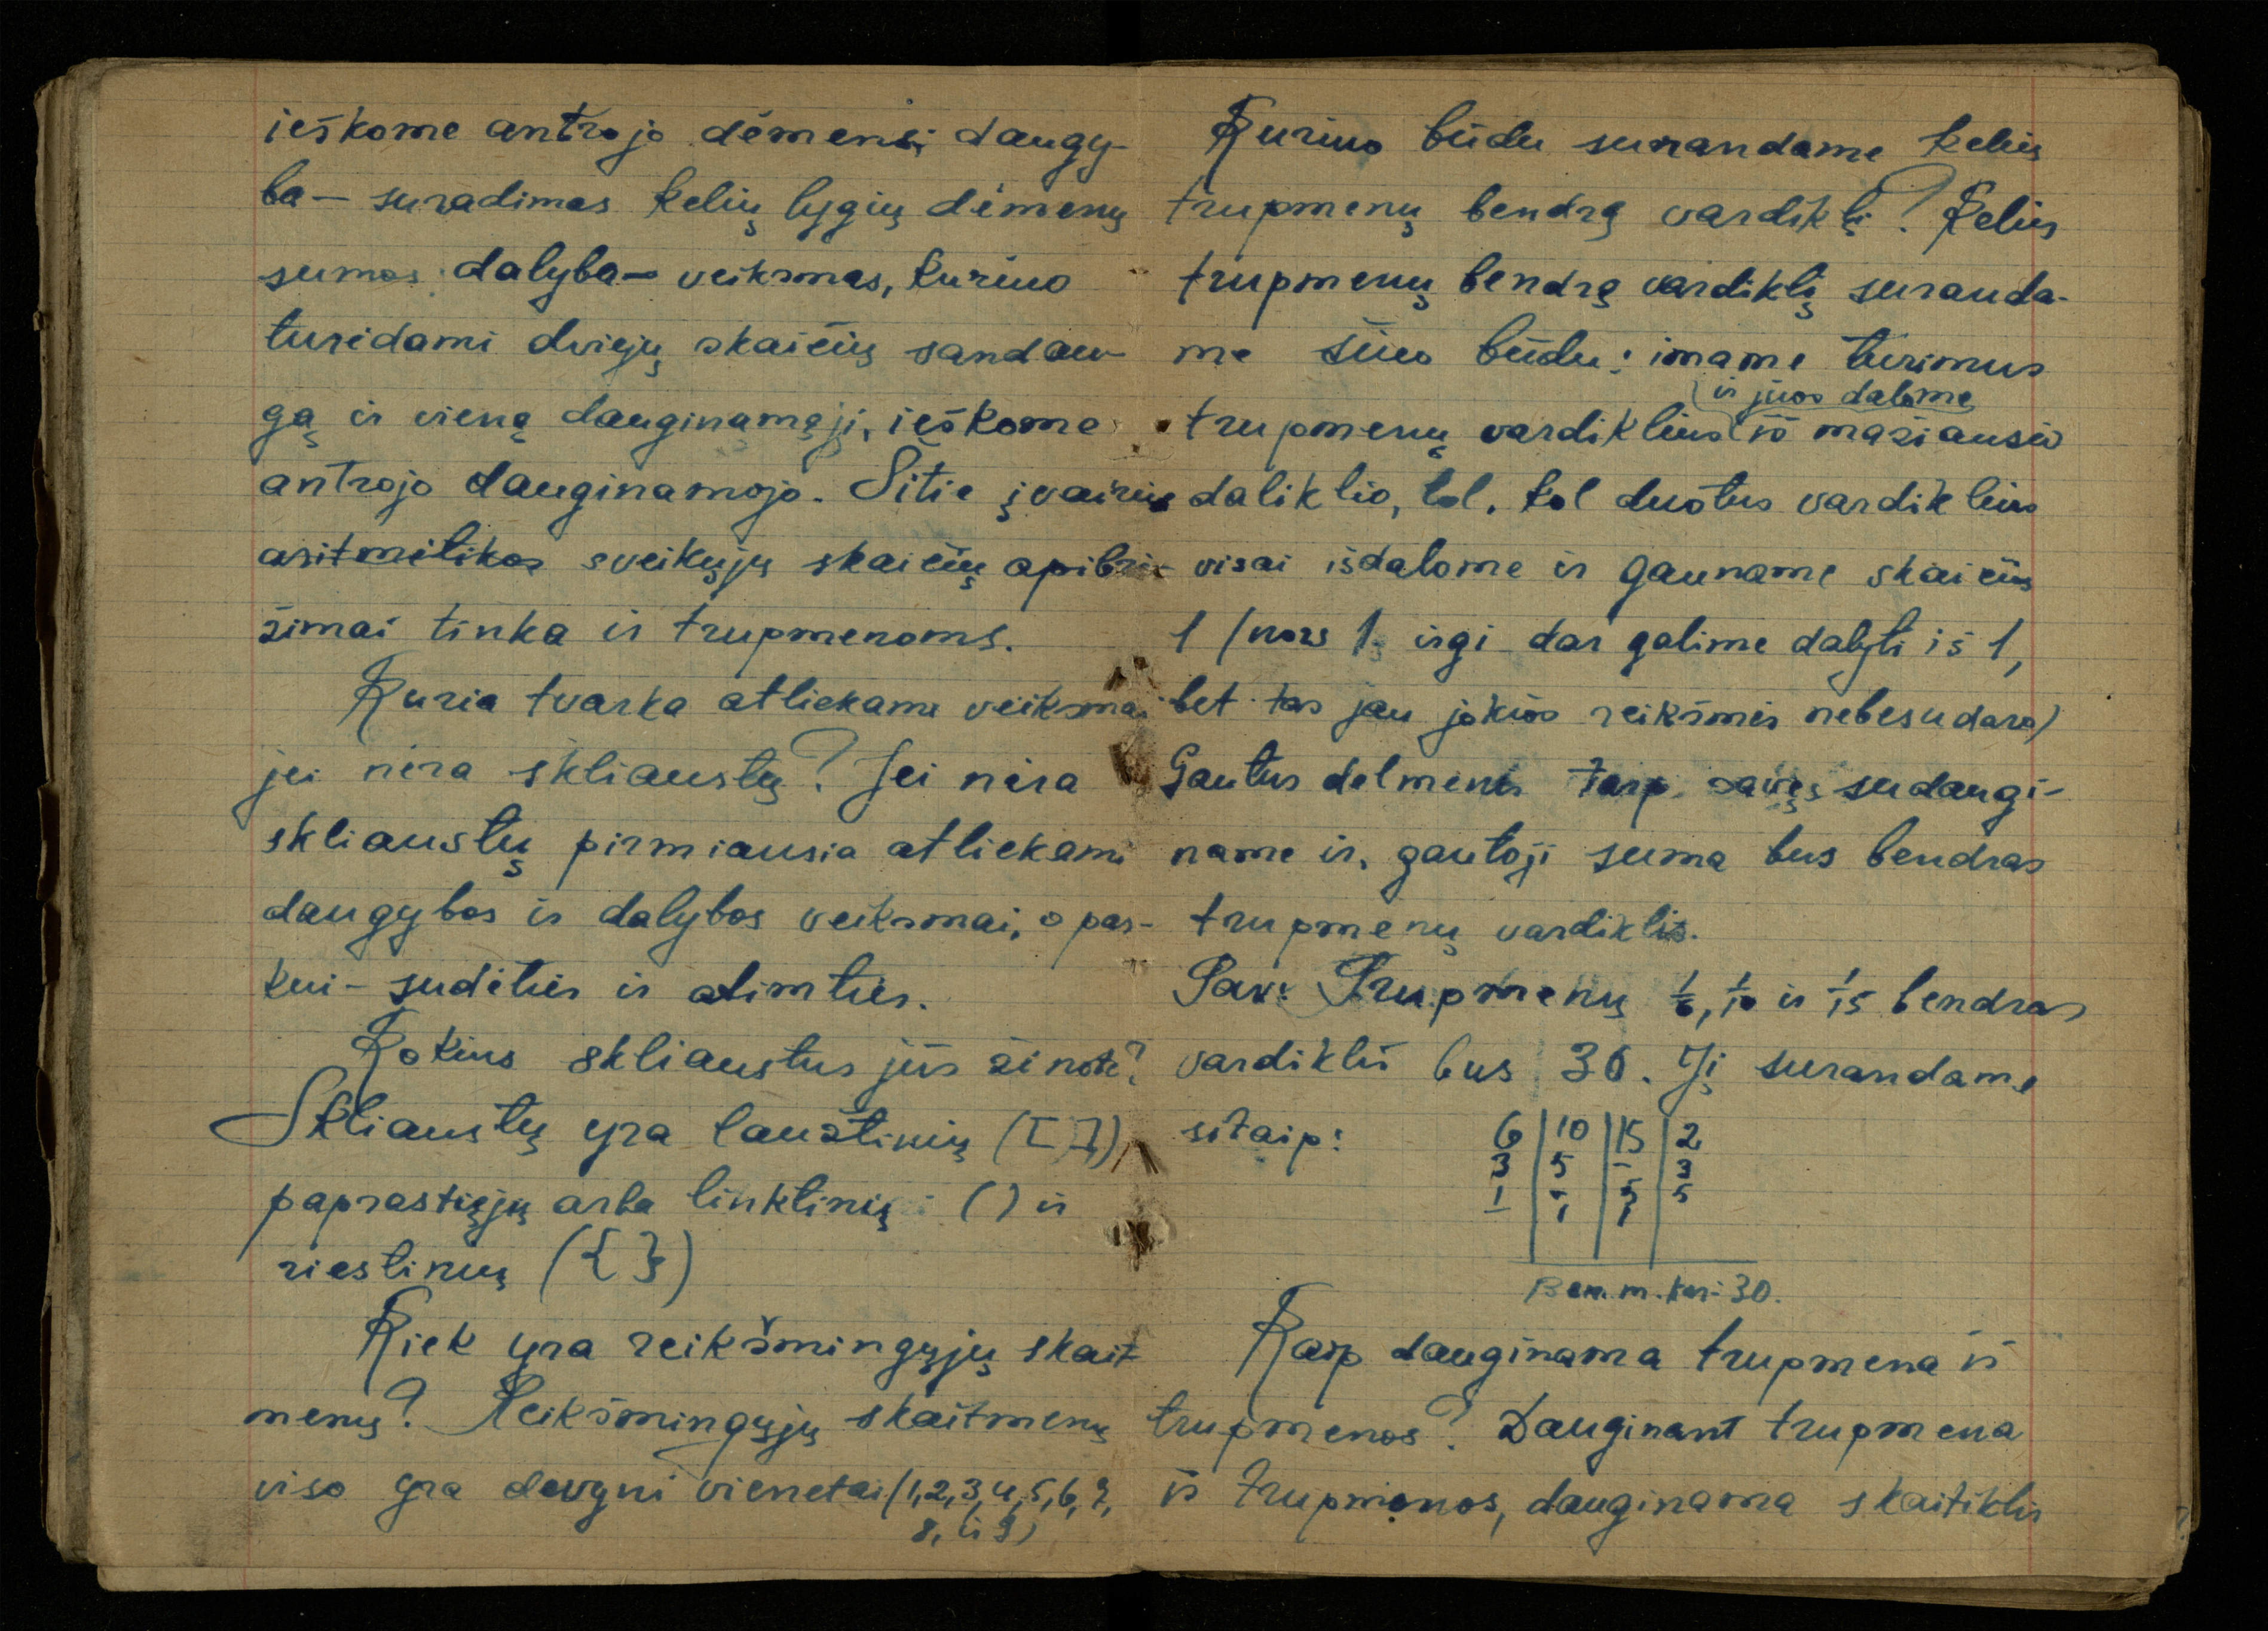 ieškome antrojo dėmens; daugy-
ba — suradimas kelių lygių dėmenų
sumos; dalyba — veiksmas, kuriuo
turėdami dviejų skaičių sandau-
gą ir vieną dauginamąjį, ieškome
antrojo dauginamojo. Šitie įvairūs
aritmetikos sveikųjų skaičių apibrė-
žimai tinka ir trupmenoms.
Kuria tvarka atliekami veiksmai
jei nėra skliaustų? Jei nėra
skliaustų pirmiausia atliekami
daugybos ir dalybos veiksmai, o pas-
kui - sudėties ir atimties.
Kokius skliaustus jūs žinote?
Skliaustų yra laužtinių ([ ]),
paprastųjų arba linktinių ( ) ir
riestinių ({ })
Kiek yra reikšmingųjų skait
menų? Reikšmingųjų skaitmenų
viso yra devyni vienetai (1,2,3,4,5,6,7,
8, ir 9)
Kuriuo būdu surandame kelių
trupmenų bendrą vardiklį? Kelių
trupmenų bendrą vardiklį suranda-
me šiuo būdu: imame turimus
ir juos dalome
trupmenų vardiklius iš mažiausio
daliklio, tol, kol duotus vardiklius
visai išdalome ir gauname skaičius
1 (nors 1 irgi dar galime dalyti iš 1,
bet tas jau jokios reikšmės nebesudaro)
Gautus dalmenis tarp savęs sudaugi-
name ir, gautoji suma bus bendras
trupmenų vardiklis.
Pav: Trupmenų 1/6, 1/10 ir 1/15 bendras
vardiklis bus 30. Jį surandame
šitaip:
6 | 10 | 15 | 2
3 | 5 | - | 3
1 | - | 5 | 5
- | 1 | 1 |
Ben. m. kar- 30.
Kaip dauginama trupmena iš
trupmenos? Dauginant trupmena
iš trupmenos, dauginama skaitiklis